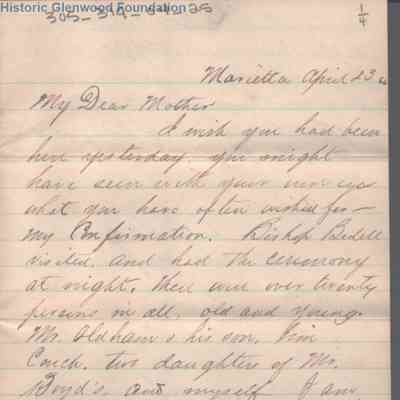 Historic Glenwood Foundation
1/4
Marietta April 23
My Dear Mother
I wish you had been
here yesterday. you might
have seen with your own eyes
what you have often wished for –
my Confirmation. Bishop Bedell
visited, and had the ceremony
at night. There were over twenty
persons in all, old and young.
Mr. Oldham & his son, Tim
Couch, two daughters of Mr.
Boyd's, and myself. I am